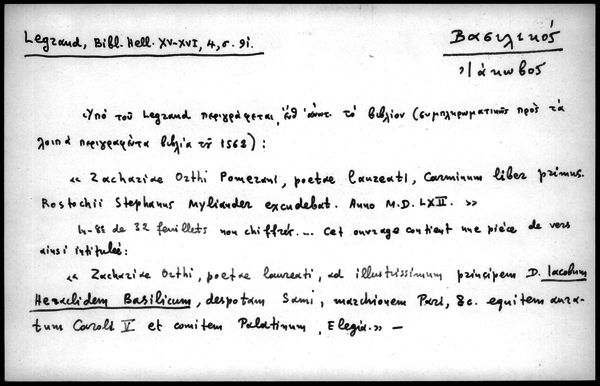 Legrand, Bibl. Hell. XV-XVI, 4, σ. 91.
Βασιλικός
Ἰάκωβος
Ὑπό τοῦ Legrand περιγράφεται, τό βιβλίον (συμπληρωματικῶς πρός τά
λοιπά περιγραφέντα βιβλία τοῦ 1562) :
« Zachariae Orthi Pomerani, poetae laureati, Carminum liber primus.
Rostochii Stephanus Myliander excudebat. Anno M.D.LXII. »
In-8º de 32 feuillets non chiffrés... Cet ouvrage contient une pièce de vers
ainsi intitulée:
« Zachariae Orthi, poetae laureati, ad illustrissimum principem D. Iacobum
Heraclidem Basilicum, despotam Sami, marchionem Pari, &c. equitem aura-
tum Caroli V et comitem Palatinum, Elegia.» —